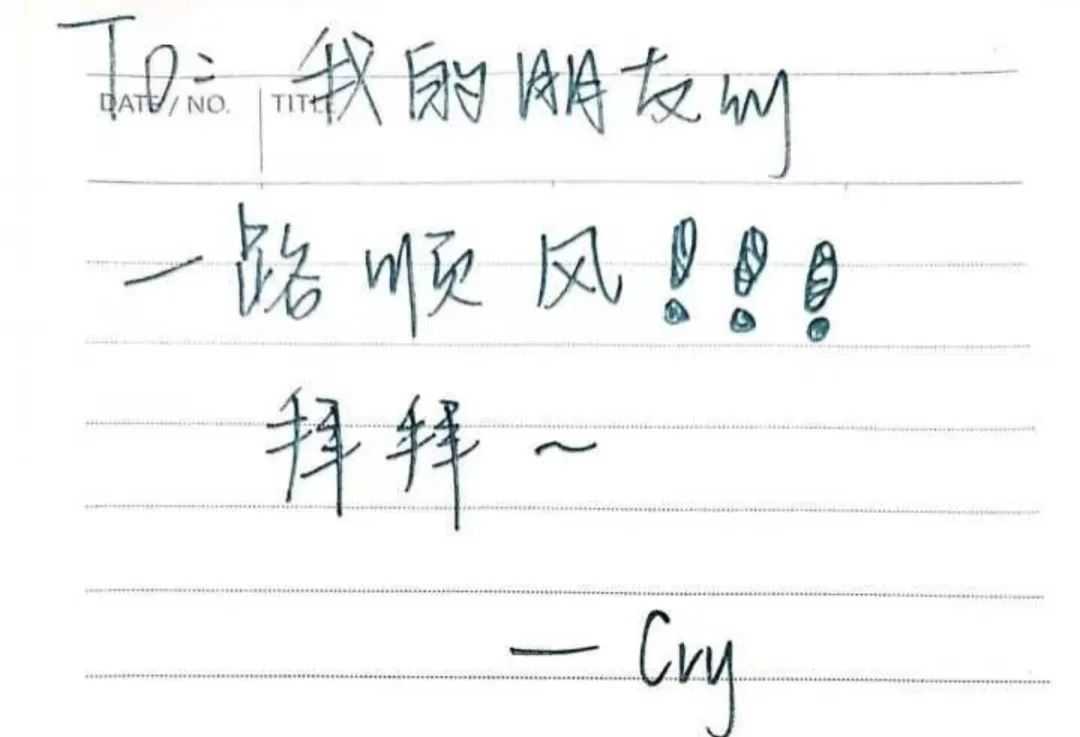 To: 我的朋友们
DATE / NO. TITLE
一路顺风!!!
拜拜~
— Cry